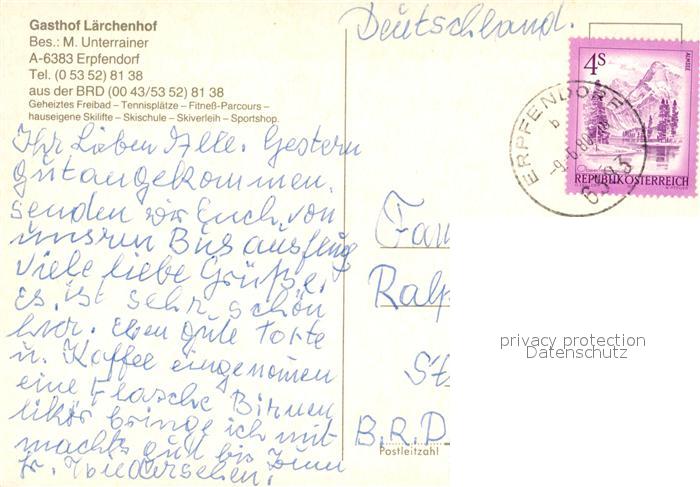 Gasthof Lärchenhof
Bes.: M. Unterrainer
A-6383 Erpfendorf
Tel. (0 53 52) 81 38
aus der BRD (00 43/53 52) 81 38
Geheiztes Freibad – Tennisplätze – Fitneß-Parcours –
hauseigene Skilifte – Skischule – Skiverleih – Sportshop.
Ihr Lieben Alle. Gestern
gut angekommen,
senden wir Euch von
unsren Bus ausflug
viele liebe Grüße.
Es ist sehr schön
hier. Eben gute Torte
u. Kaffee eingenommen
eine Flasche Birnen
likör bringe ich mit
machts gut bis zum
Wiedersehen.
Deutschland.
4 S
ALMSEE
REPUBLIK ÖSTERREICH
ERPFENDORF
b
-9.-6.80
6383
Fam
Ralp
St
B.R.D
Postleitzahl
privacy protection
Datenschutz